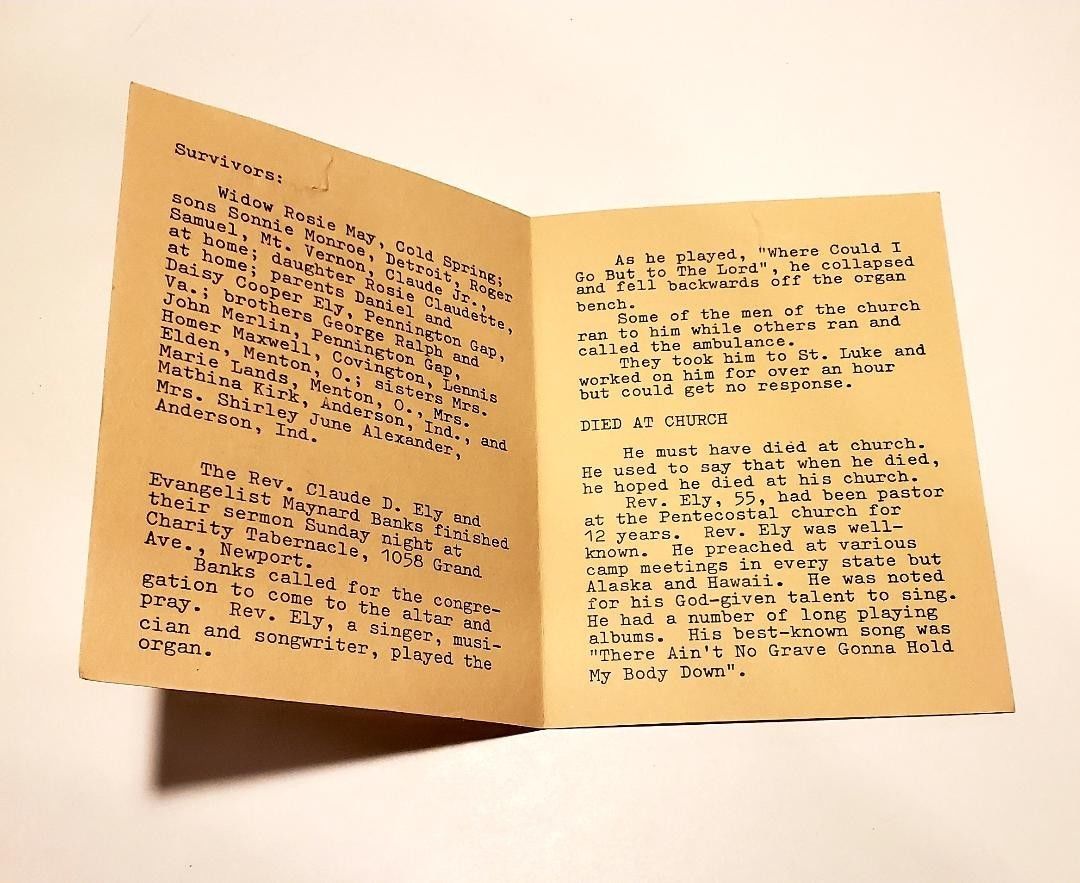 Survivors:
Widow Rosie May, Cold Spring;
sons Sonnie Monroe, Detroit, Roger
Samuel, Mt. Vernon, Claude Jr.,
at home; daughter Rosie Claudette,
at home; parents Daniel and
Daisy Cooper Ely, Pennington Gap,
Va.; brothers George Ralph and
John Merlin, Pennington Gap,
Homer Maxwell, Covington, Lennis
Elden, Menton, O.; sisters Mrs.
Marie Lands, Menton, O., Mrs.
Mathina Kirk, Anderson, Ind., and
Mrs. Shirley June Alexander,
Anderson, Ind.
The Rev. Claude D. Ely and
Evangelist Maynard Banks finished
their sermon Sunday night at
Charity Tabernacle, 1058 Grand
Ave., Newport.
Banks called for the congre-
gation to come to the altar and
pray. Rev. Ely, a singer, musi-
cian and songwriter, played the
organ.
As he played, "Where Could I
Go But to The Lord", he collapsed
and fell backwards off the organ
bench.
Some of the men of the church
ran to him while others ran and
called the ambulance.
They took him to St. Luke and
worked on him for over an hour
but could get no response.
DIED AT CHURCH
He must have died at church.
He used to say that when he died,
he hoped he died at his church.
Rev. Ely, 55, had been pastor
at the Pentecostal church for
12 years. Rev. Ely was well-
known. He preached at various
camp meetings in every state but
Alaska and Hawaii. He was noted
for his God-given talent to sing.
He had a number of long playing
albums. His best-known song was
"There Ain't No Grave Gonna Hold
My Body Down".